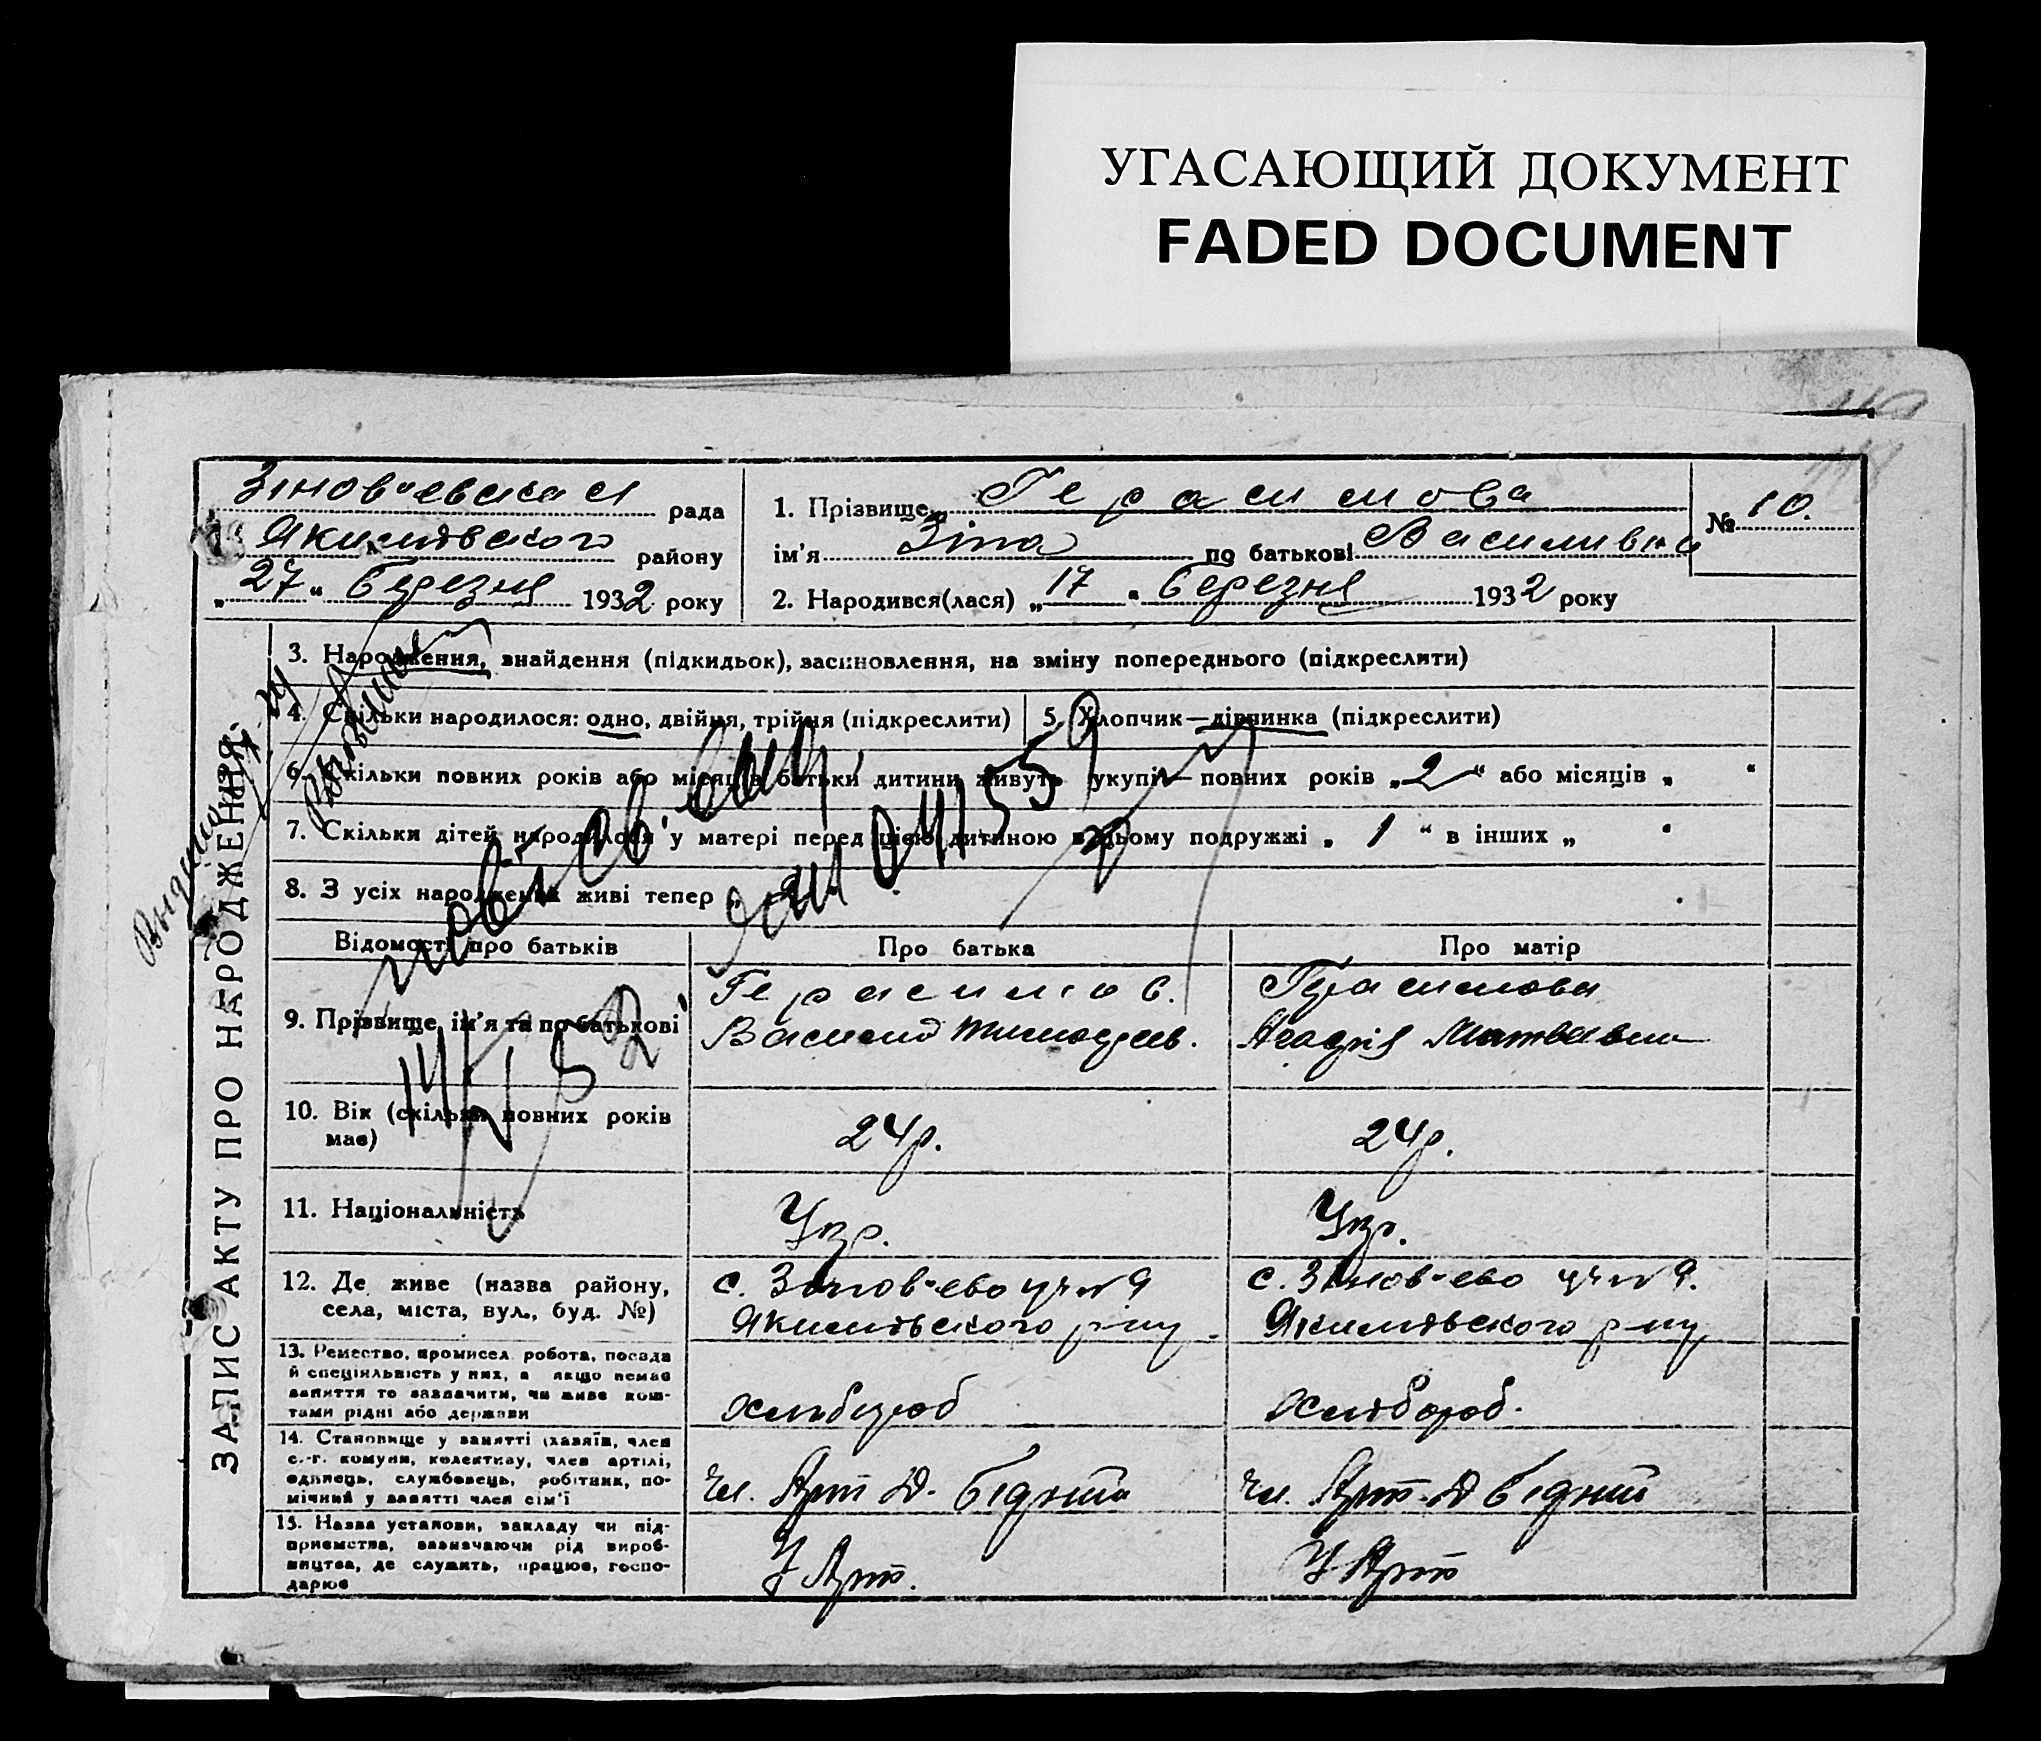 УГАСАЮЩИЙ ДОКУМЕНТ
FADED DOCUMENT
Зінов'евська рада
Якимівського району
„27“ березня 1932 року
1. Прізвище Герасимова
ім'я Зіна по батькові Василивна
№ 10.
2. Народився(лася) „17“ березня 1932 року
ЗАПИС АКТУ ПРО НАРОДЖЕННЯ
3. Народження, знайдення (підкидьок), засиновлення, на зміну попереднього (підкреслити)
4. Скільки народилося: одно, двійня, трійня (підкреслити)
5. Хлопчик—дівчинка (підкреслити)
6. Скільки повних років або місяців батьки дитини живуть укупі—повних років „2“ або місяців „ “
7. Скільки дітей народилося у матері перед цією дитиною в цьому подружжі „ 1 “ в інших „ “
8. З усіх народжених живі тепер „
Відомості про батьків
Про батька
Про матір
9. Прізвище, ім'я та по батькові
Герасимов.
Василь
Герасимова
10. Вік (скільки повних років
має)
24р.
24р.
11. Національність
Укр.
Укр.
12. Де живе (назва району,
села, міста, вул., буд. №)
с. Зінов'ево уч №9
Якимівського р-ну
с. Зінов'ево уч №9.
Якимівського р-ну
13. Ремество, промисел, робота, посада
й спеціяльність у них, а якщо немає
заняття то зазначити, чи живе кош-
тами рідні або держави
хлібороб
хлібороб.
14. Становище у занятті (хазяїн, член
с.-г. комуни, колективу, член артілі,
одинець, службовець, робітник, по-
мічний у занятті член сім'ї
чл. Арт Д. бідняк
чл. Арт. Д бідняк
15. Назва установи, закладу чи під-
приємства, зазначаючи рід вироб-
ництва, де служить, працює, госпо-
дарює
У Арт.
У Арт